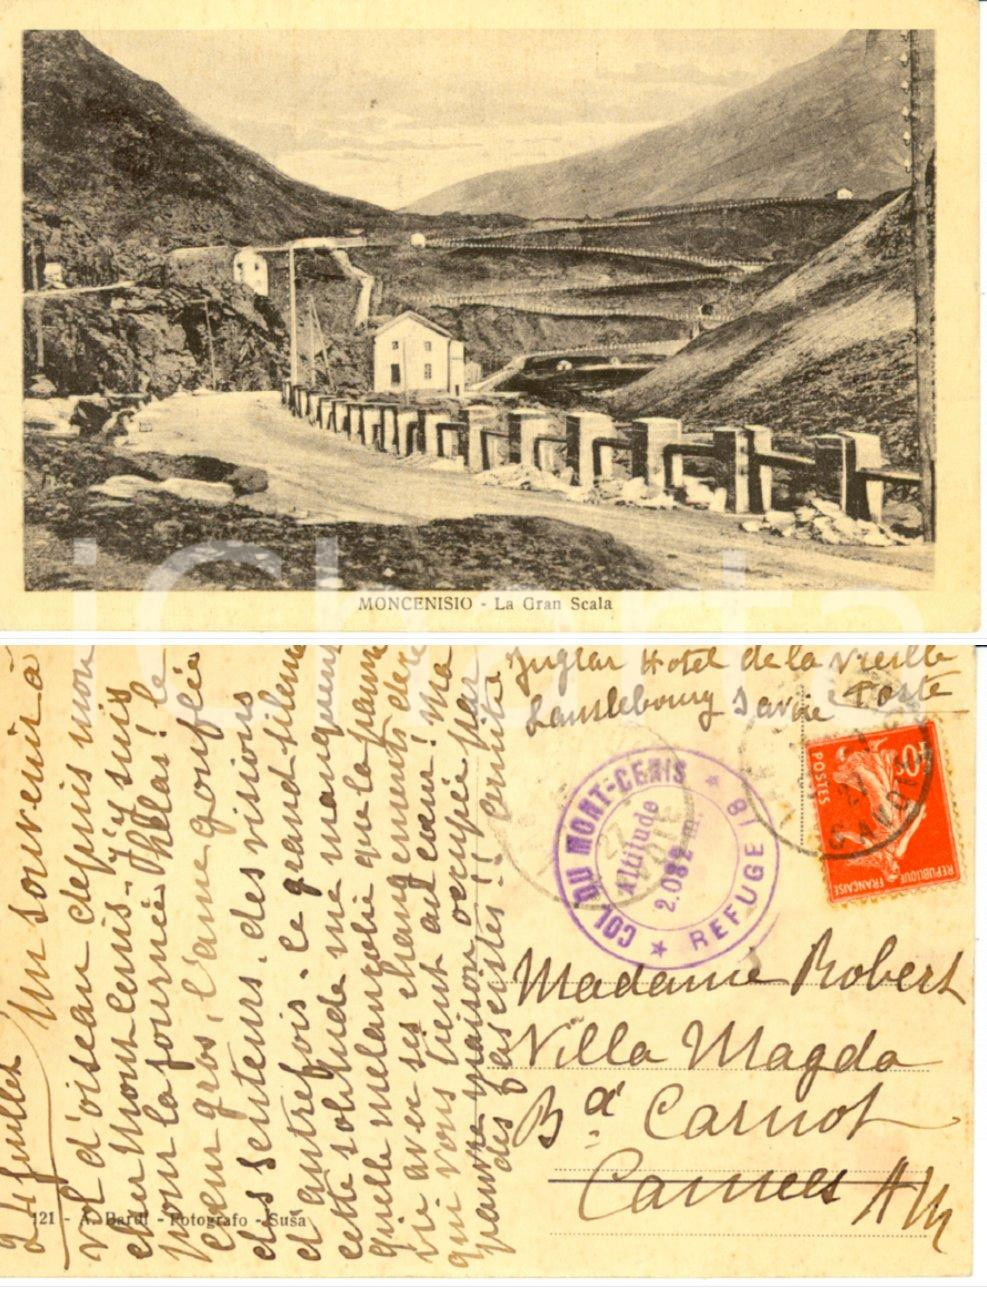 MONCENISIO - La Gran Scala
iCharta
24 juillet
Un souvenir à
vol d'oiseau depuis mon
cher Mont Cenis. J'y suis
pour la journée hélas! le
cœur gros, l'âme gonflée
des senteurs, des visions
d'autrefois. Ce grand silence
cette solitude me manquent
quelle mélancolie que la
vie avec ses changements de
qui vous tient au cœur! Ma
pauvre maison occupée par
des fascistes!!
Hotel de la Vieille
Poste
Lanslebourg Savoie
COL DU MONT-CENIS
Altitude
2.082 m.
REFUGE 18
REPUBLIQUE FRANÇAISE
POSTES
10c
27
SAVOIE
Madame Robert
Villa Magda
Bd. Carnot
Cannes AM
121 - A. Bardi - Fotografo - Susa